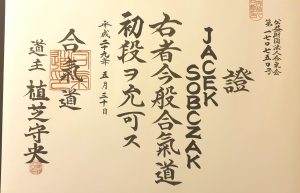 公益財団法人合気会
第一七〇七七五〇号
證
JACEK
SOBCZAK
右者今般合氣道
初段ヲ允可ス
平成二十九年 五月三十日
合氣道
道主 植芝守央